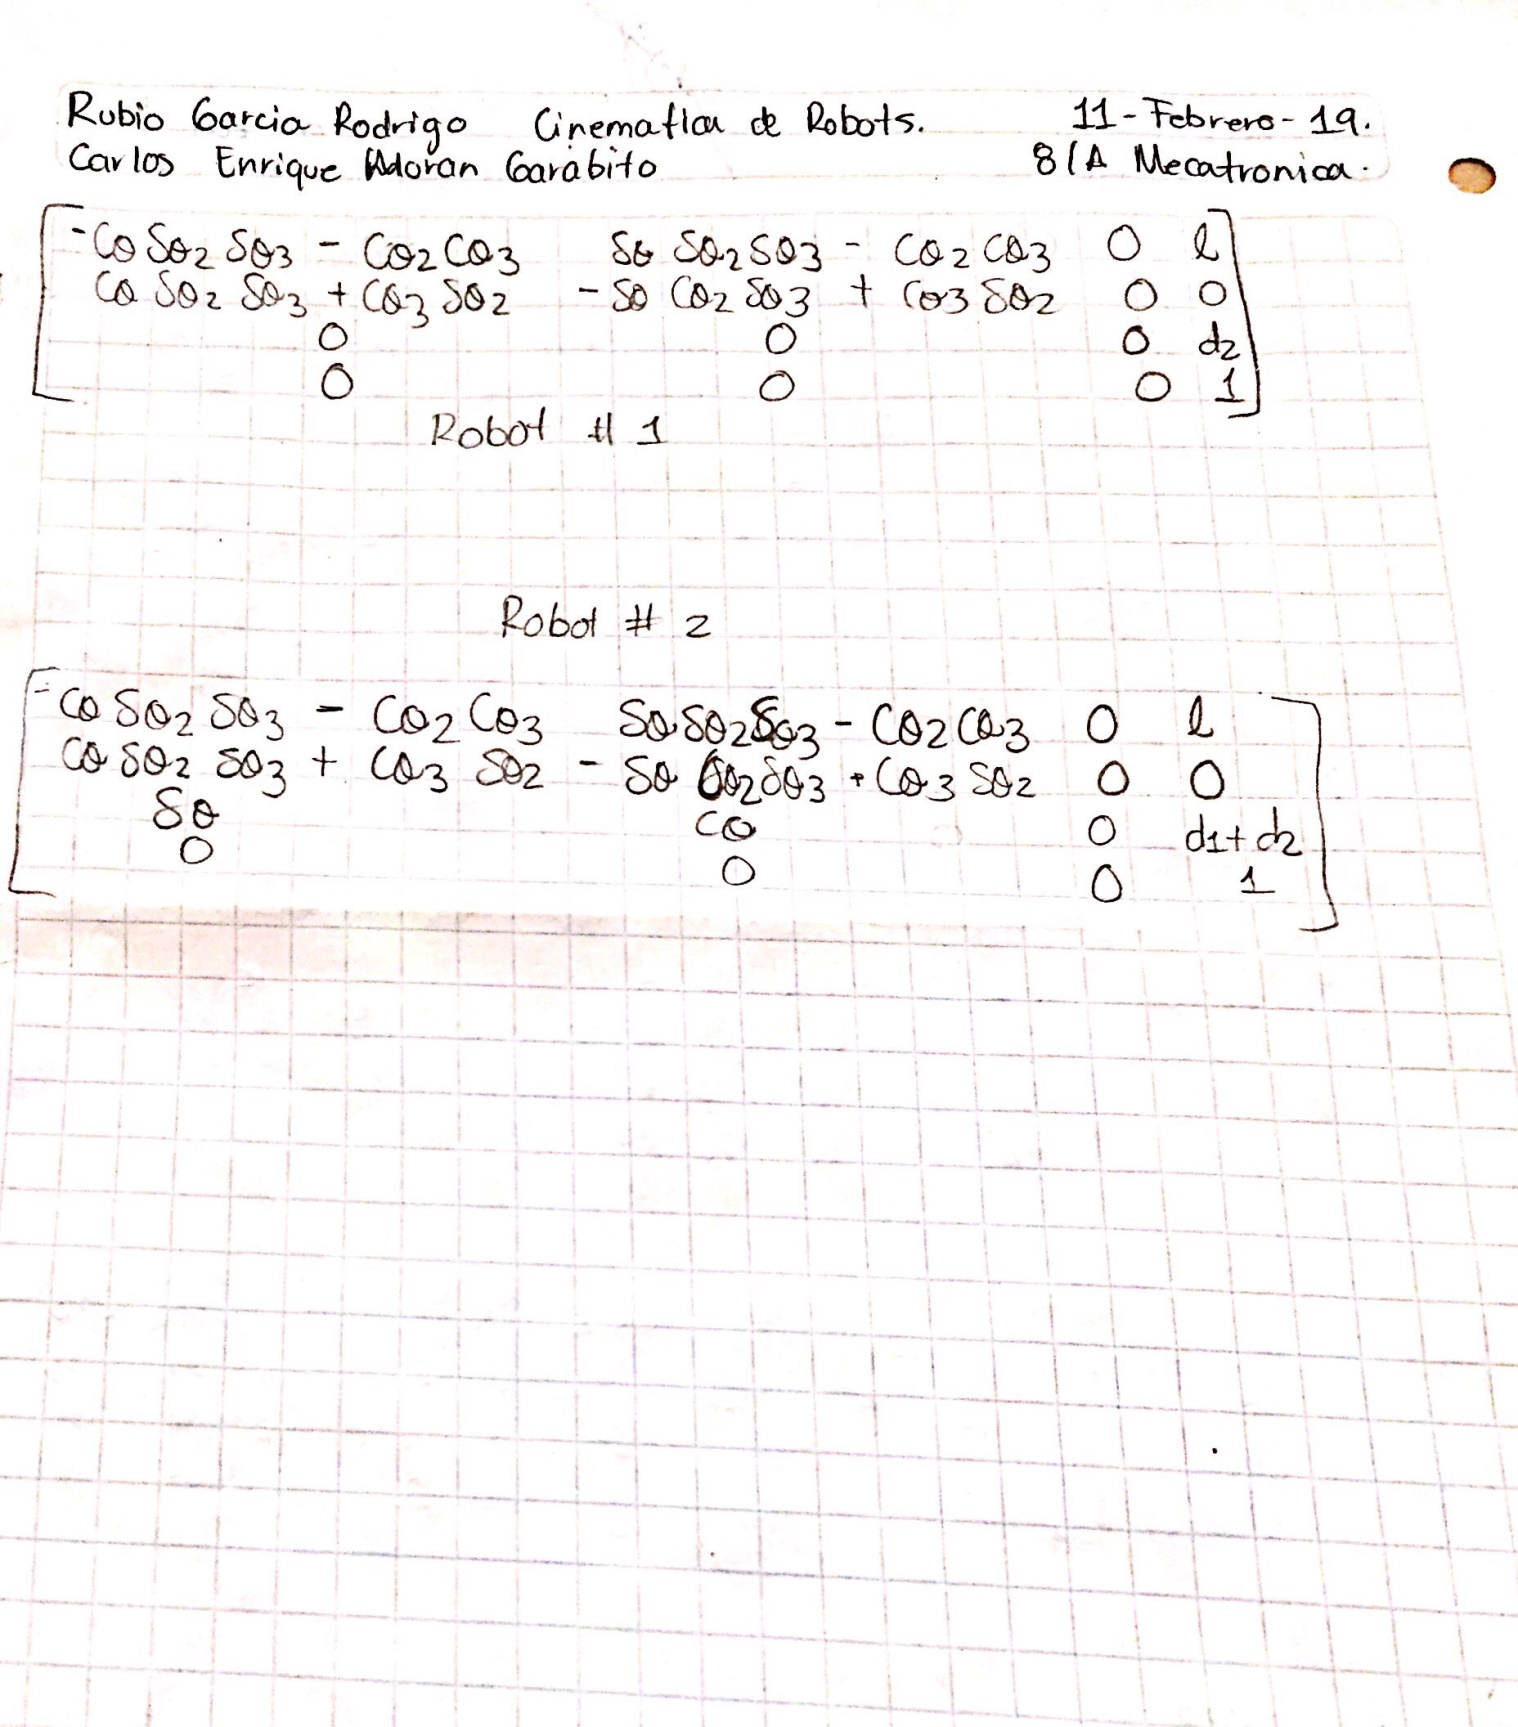 Rubio Garcia Rodrigo Cinematica de Robots. 11-Febrero-19.
Carlos Enrique Adoran Garabito 8/A Mecatronica.
-Cθ Sθ2 Sθ3 - Cθ2 Cθ3 Sθ Sθ2 Sθ3 - Cθ2 Cθ3 0 l
Cθ Sθ2 Sθ3 + Cθ3 Sθ2 - Sθ Cθ2 Sθ3 + Cθ3 Sθ2 0 0
0 0 0 d2
0 0 0 1
Robot # 1
Robot # 2
-Cθ Sθ2 Sθ3 - Cθ2 Cθ3 Sθ Sθ2 Sθ3 - Cθ2 Cθ3 0 l
Cθ Sθ2 Sθ3 + Cθ3 Sθ2 - Sθ Cθ2 Sθ3 + Cθ3 Sθ2 0 0
Sθ Cθ 0 d1+d2
0 0 0 1